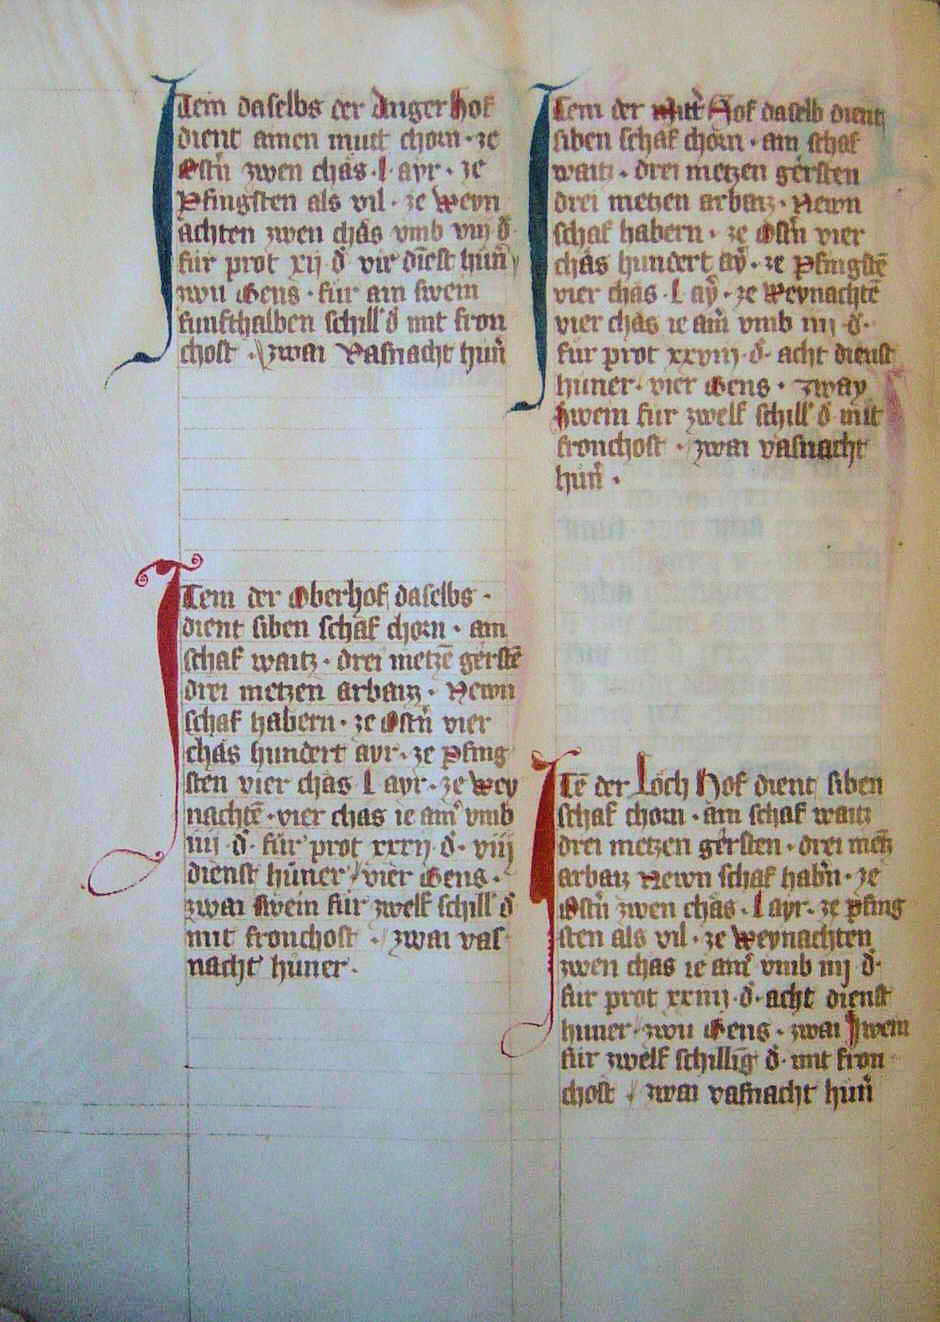 Item daselbs der Anger hof
dient amen mutt chorn · ze
Ostn̄ zwen chäs · l · ayr · ze
Pfingsten als vil · ze Weyn
achten zwen chäs vmb viij d̄
für prot xij · d̄ · vir dīest hūn
zwu Gens · für ain swein
funfthalben schill d̄ mit fron
chost · zwai Vasnacht hūn
Item der Oberhof daselbs ·
dient siben schaf chorn · am
schaf waitz · drei metzē gerstē
drei metzen arbaiz · Newn
schaf habern · ze Ostn̄ vier
chäs hundert ayr · ze Pfing
sten vier chäs l ayr · ze Wey
nachtē · vier chäs ie am̄ vmb
iiij · d̄ · für prot xxxij · d̄ · viij
dienst hüner vier Gens ·
zwai Swein für zwelf schill d̄
mit fronchost · zwai vas
nacht hüner ·
Item der Mitt̄ Hof daselb dient
siben schaf chorn · am schaf
waitz · drei metzen gersten
drei metzen arbaiz · Newn
schaf habern · ze Ostn̄ vier
chäs hundert aȳ · ze Pfingstē
vier chäs · l aȳ · ze Weynachtē
vier chäs ie am̄ vmb iiij · d̄ ·
für prot xxviij · d̄ · acht dienst
hüner · vier Gens · zway
Swein für zwelf schill d̄ mit
fronchost · zwai vasnacht
hūn ·
Itē der Loch Hof dient siben
schaf chorn · am schaf waitz
drei metzen gersten · drei metz̄
arbaiz Newn schaf habn̄ · ze
Ostn̄ zwen chäs · l ayr · ze Pfing
sten als vil · ze Weynachten
zwen chäs ie am̄ vmb iiij d̄ ·
für prot xxiiij · d̄ · acht dienst
huner · zwu Gens · zwai Swein
für zwelf schillīg d̄ · mit fron
chost zwai vasnacht hūn